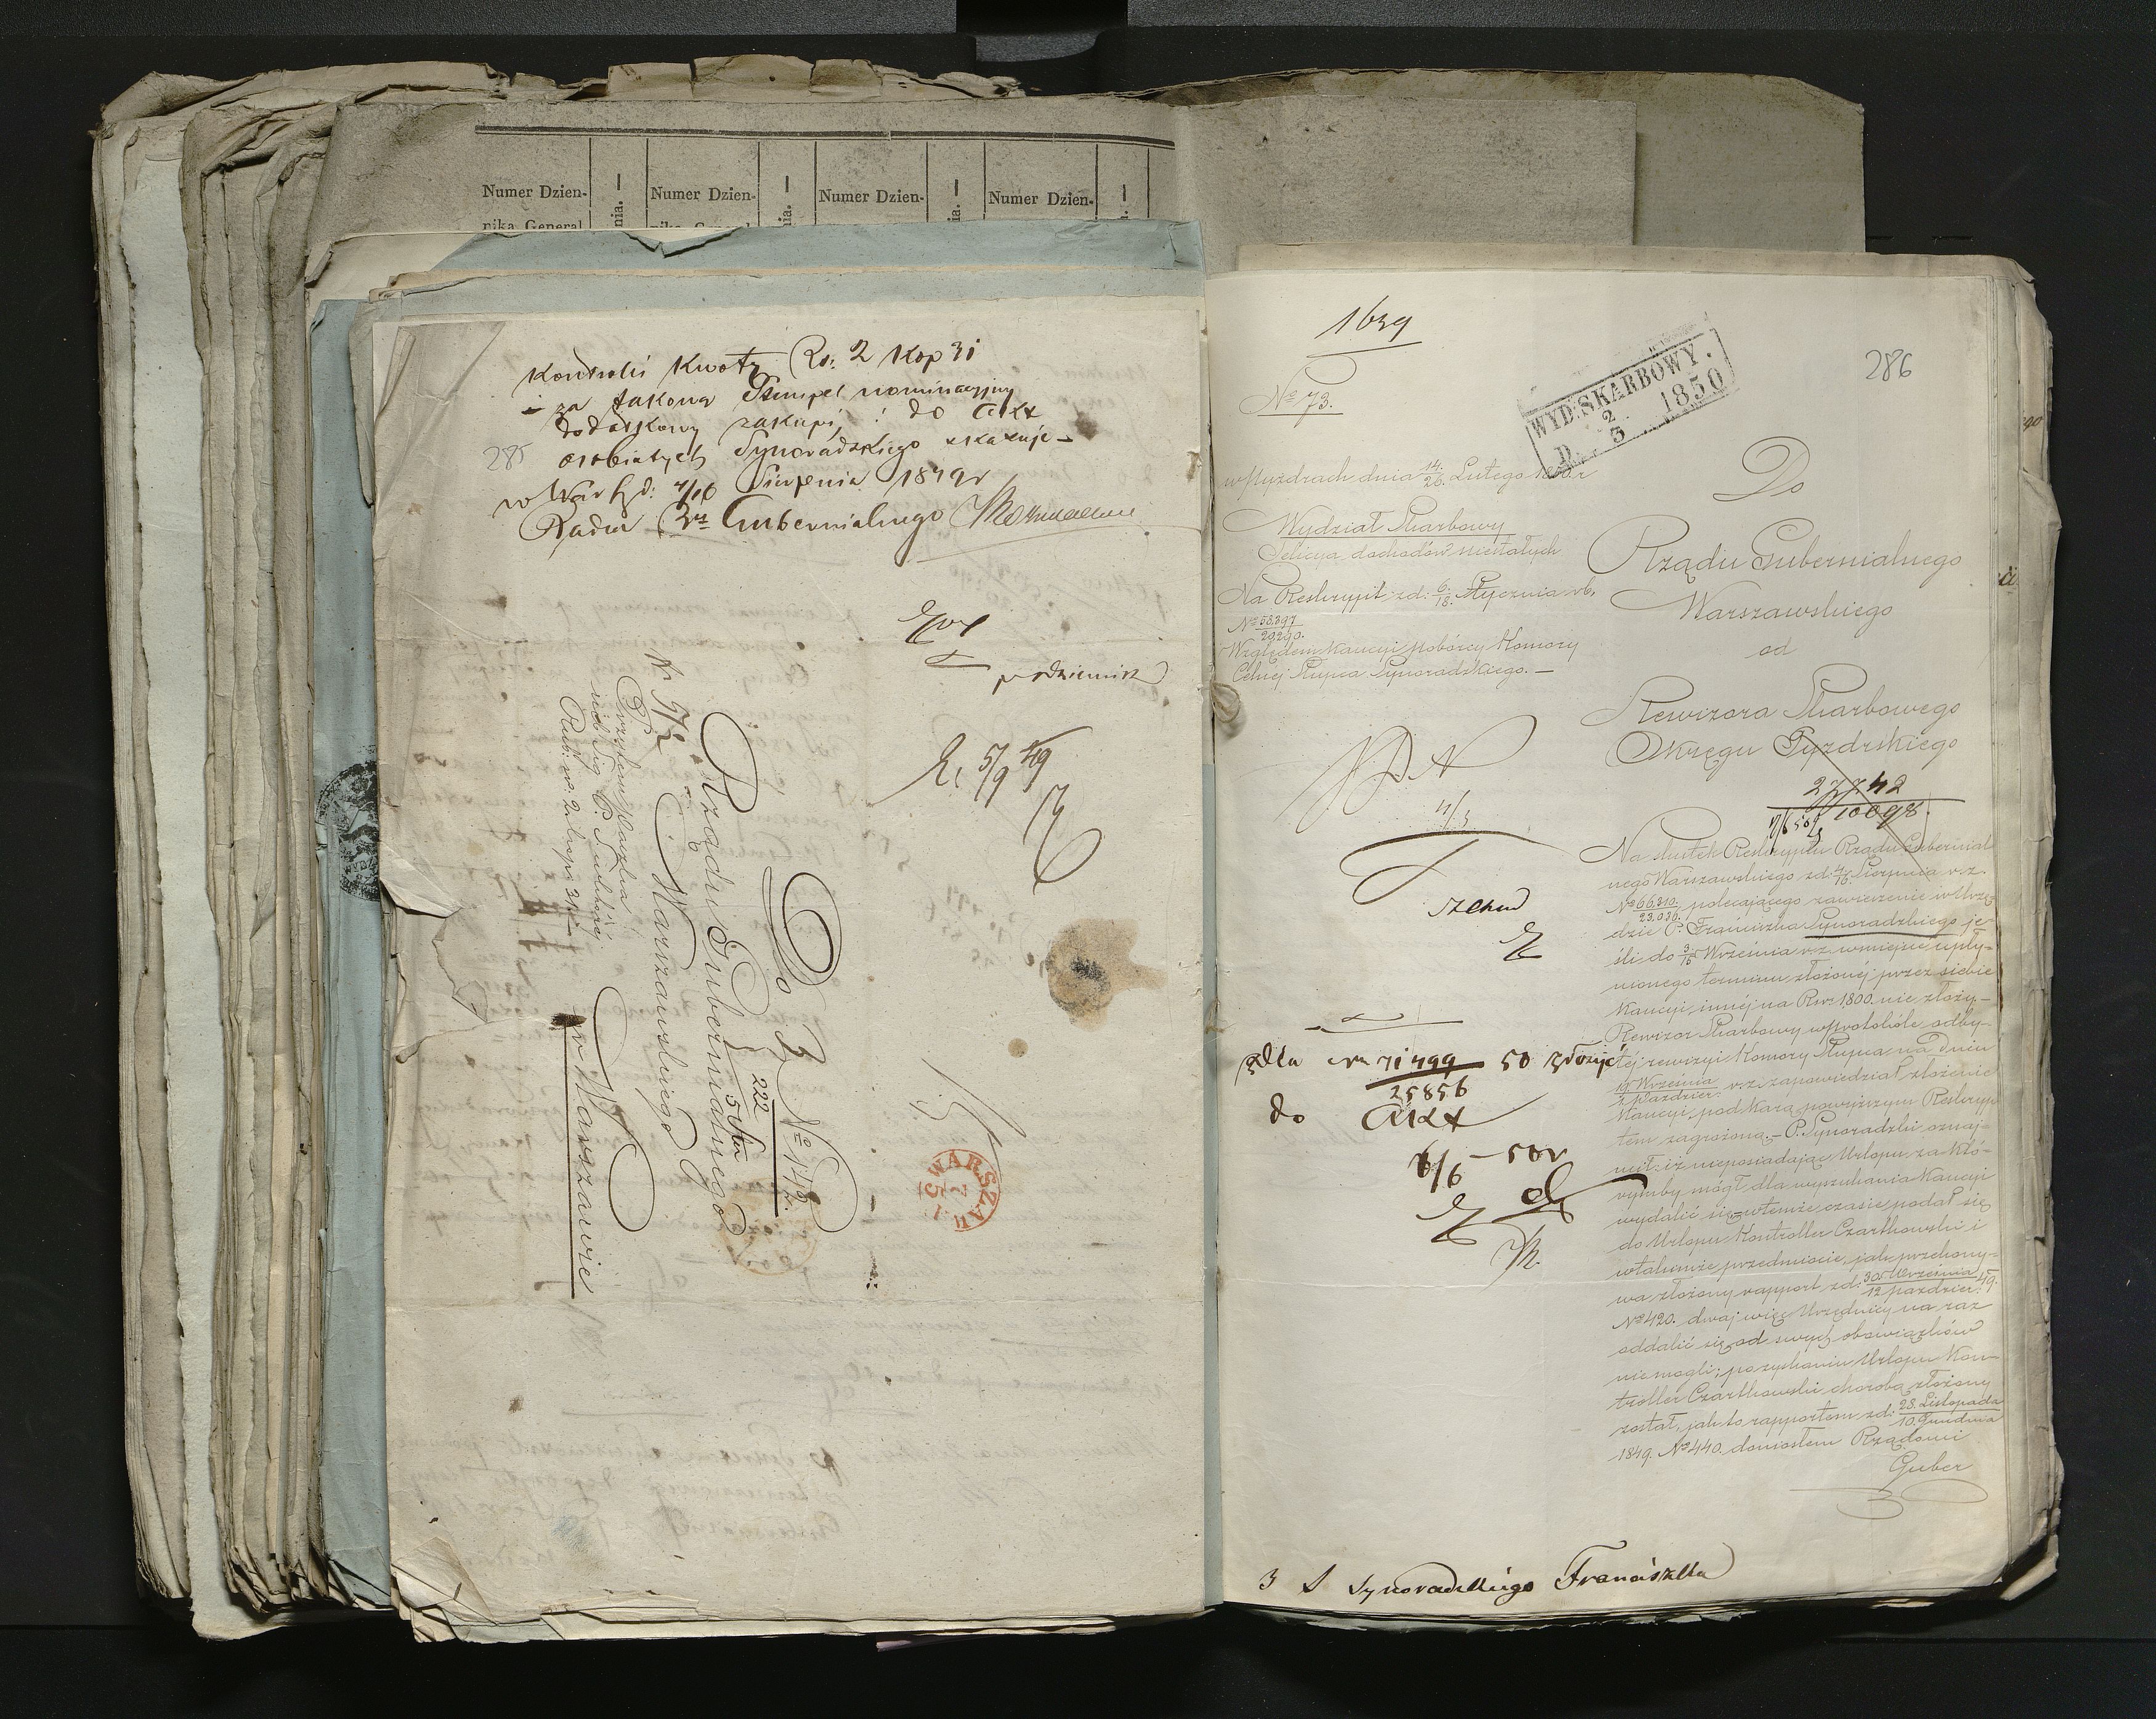 Numer Dzien-
nia.
Numer Dzien-
nia.
Numer Dzien-
ia.
Numer Dzien-
nika General
Kontroli Kwotę Rs: 2 Kop 31
za takową Stempel nominacyjny
dodatkowy zakupi, i do Akt
osobistych Synoradzkiego wkazuje –
285
w War: d: 4/16 Sierpnia 1849 r
Radca Gubernialnego
podziennik
5/9 49
Do
Rządu Gubernialnego
Warszawskiego
w Warszawie
222
WARSZAWA
1639
286
WYD: SKARBOWY.
D. 2/3 1850
No 73.
w Pyzdrach dnia 14/26 Lutego 1850 r
Wydział Skarbowy
Sekcya dochodów niestałych
Na Reskrypt zd: 6/18 Stycznia rb.
No 58,397/29290.
Względem Kaucyi Pobórcy Komory
Celnej Słupca Synoradzkiego. –
Do
Rządu Gubernialnego
Warszawskiego
od
Rewizora Skarbowego
Okręgu Pyzdrskiego
27742
10098
Na skutek Reskryptu Rządu Gubernial
nego Warszawskiego zd: 4/16 Sierpnia r. z.
No 66,310/23,036. polecającego zawieszenie w Urzę
dzie P. Franciszka Synoradzkiego je-
śli do 3/15 Września r. z. w miejsce upły-
nionego terminu złożonéj przez siebie
Kaucyi innéj na Rsr. 1800. nie złoży –
Rewizor Skarbowy w protokóle odby-
téj rewizyi Komory Słupca na dniu
19 Września/1 Paździer: r. z. zapowiedział złożenie
Kaucyi, pod karą powyższym Reskryp
tem zagrożoną. – P. Synoradzki oznaj-
mił: iż nieposiadając Urlopu za któ-
rymby mógł dla wyszukania Kaucyi
wydalić się, w temże czasie podał się
do Urlopu Kontroller Czartkowski i
w takowéże przedmiocie, jak przekony-
wa złożony rapport zd: 30 Września/12 Paździer: 49.
No 420. dwaj więc Urzędnicy na raz
oddalić się od swych obowiązków
niemogli; po zyskaniu Urlopu Kon-
troller Czartkowski chorobą złożony
został, jak to rapportem zd: 28. Listopada/10. Grudnia
1849. No 440. doniosłem Rządowi
Guber
4/3
71499 50 złożyć
25856
do Akt
6/6 50 r
3 S Synoradzkiego Franciszka